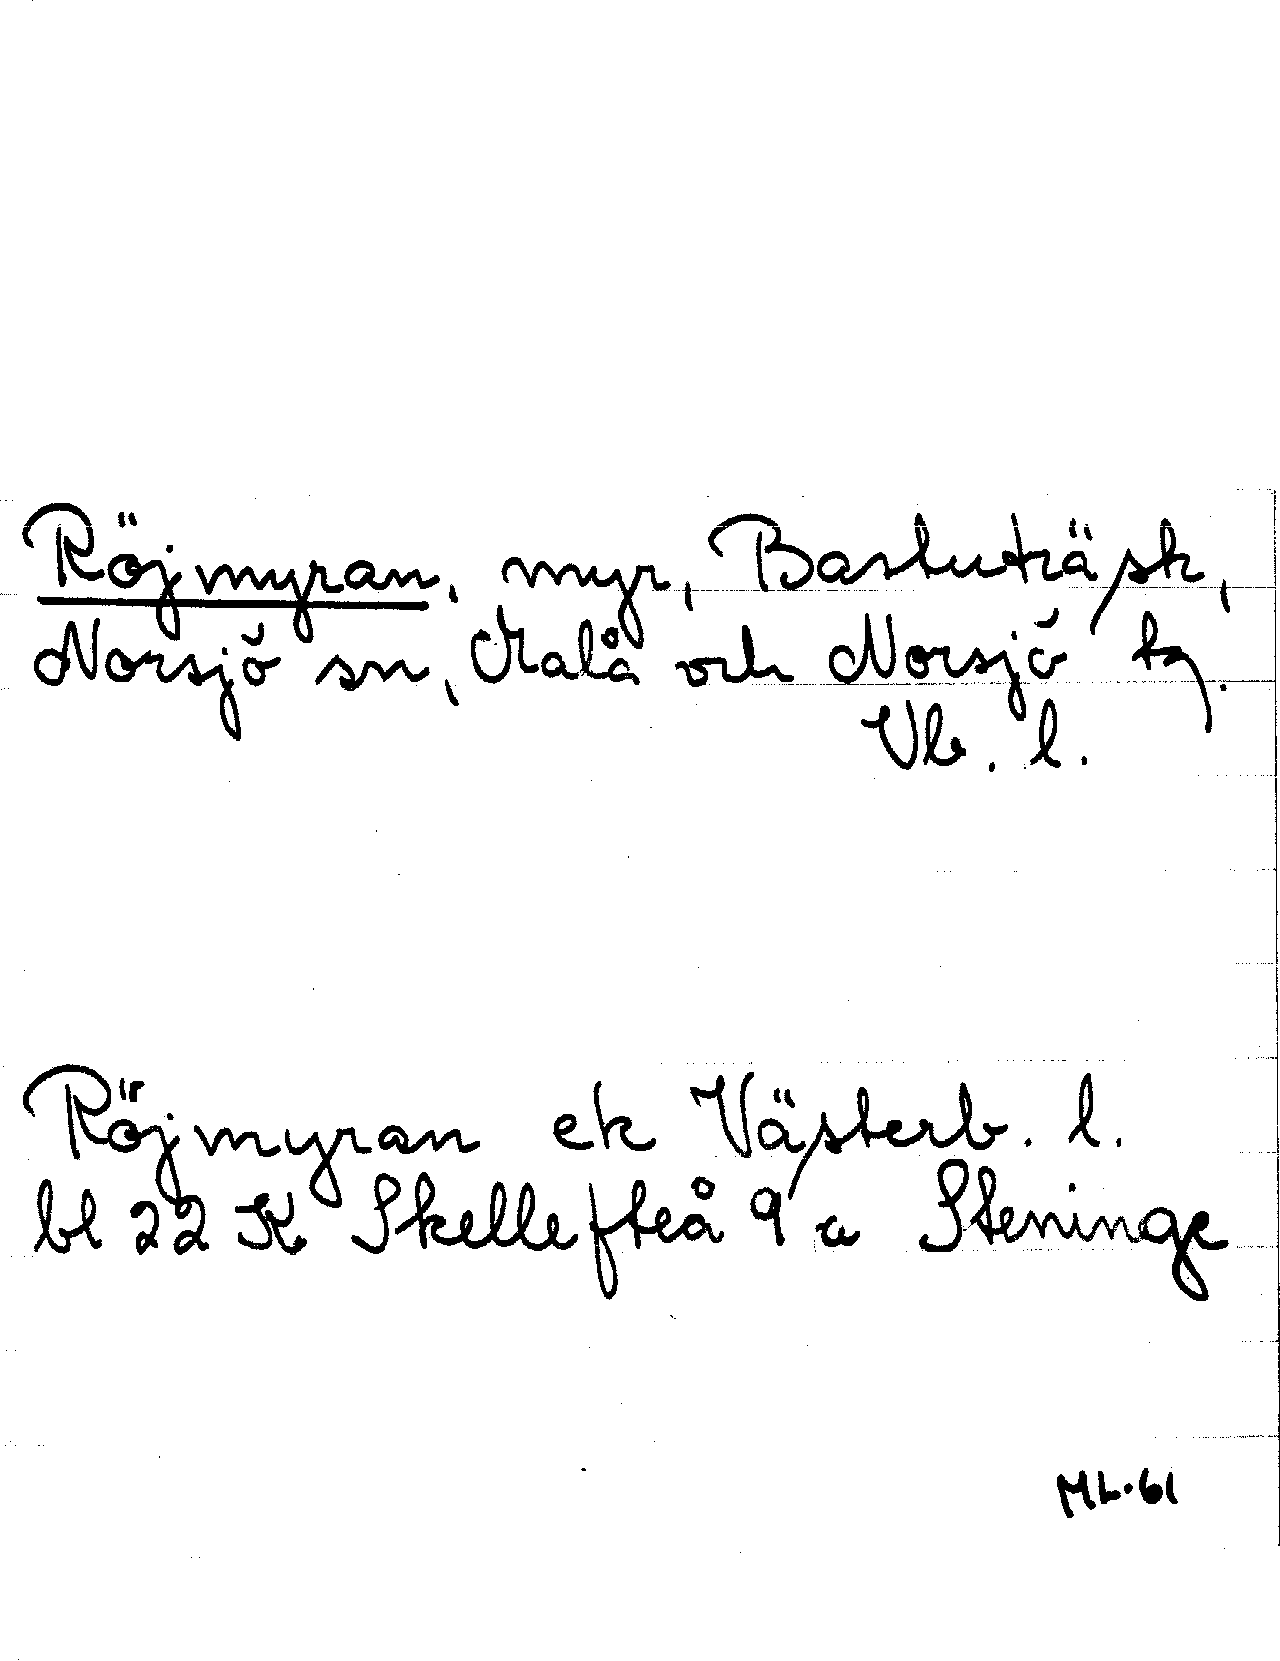 Röjmyran, myr, Bastuträsk,
Norsjö sn, Malå och Norsjö tg.
Vb. l.
Röjmyran ek Västerb. l.
bl 22 K Skellefteå 9 a Steninge
ML·61